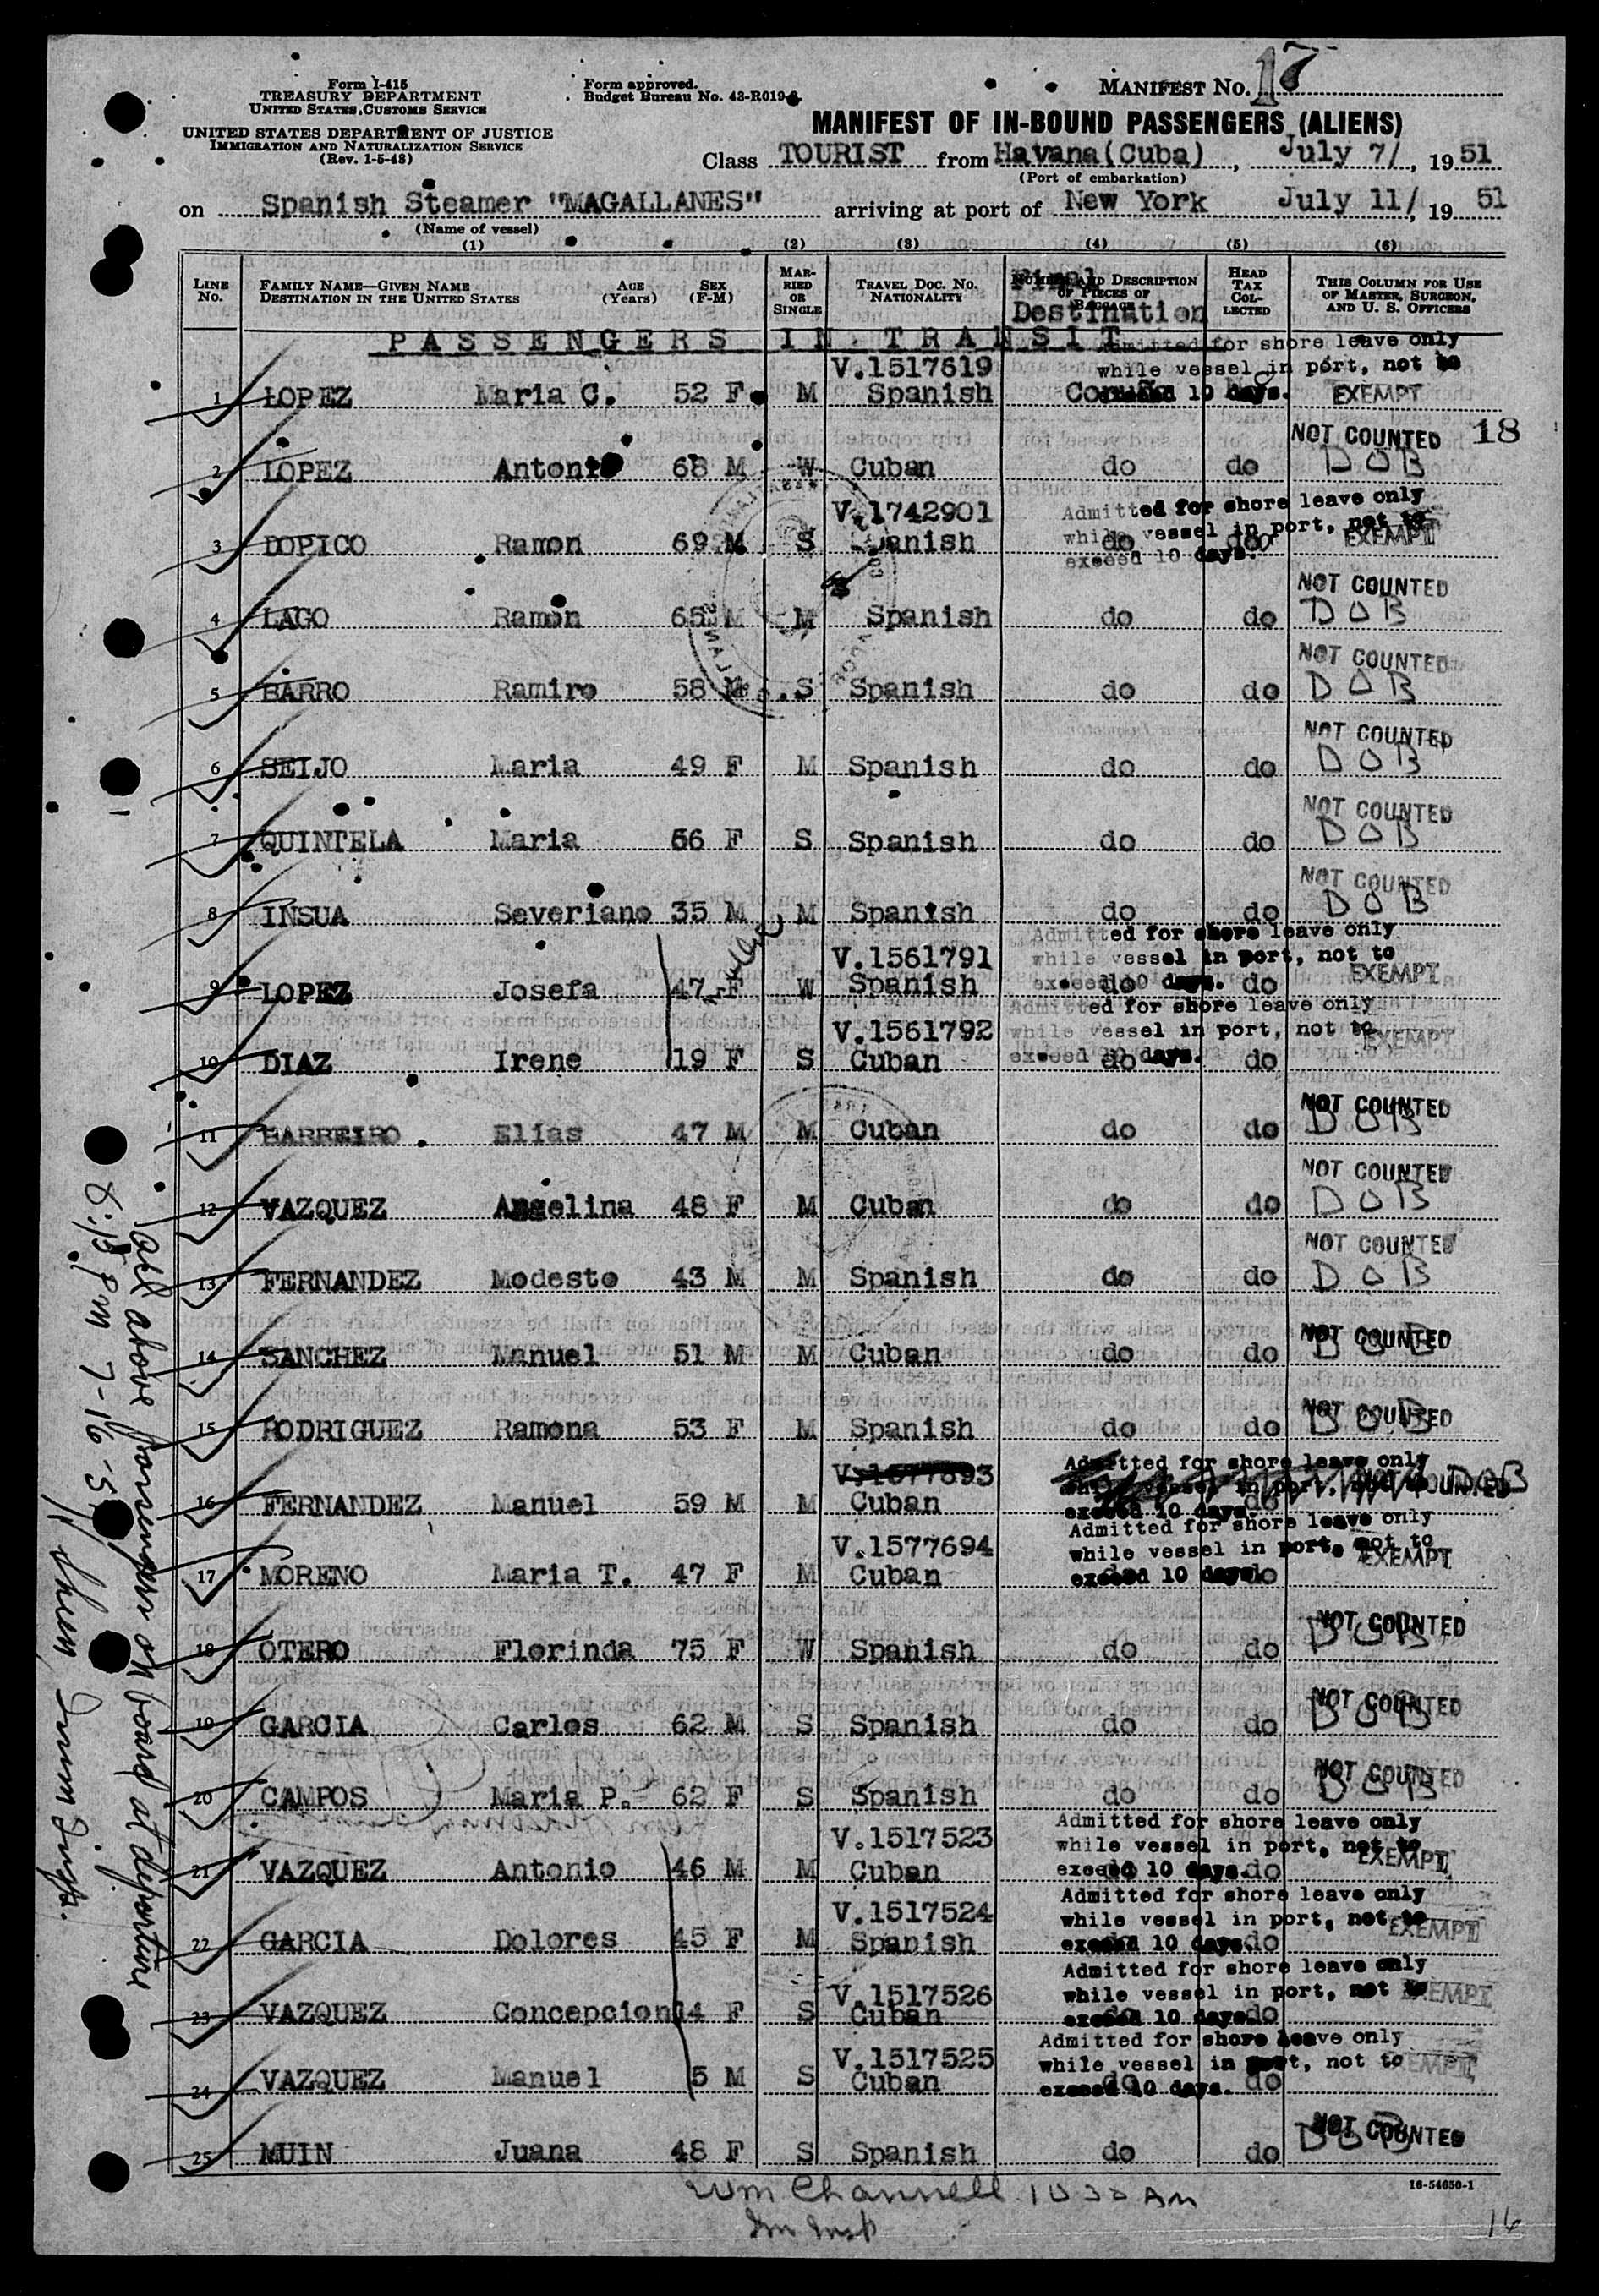 Form I-415
TREASURY DEPARTMENT
UNITED STATES CUSTOMS SERVICE
UNITED STATES DEPARTMENT OF JUSTICE
IMMIGRATION AND NATURALIZATION SERVICE
(Rev. 1-5-48)
Form approved.
Budget Bureau No. 43-R019
MANIFEST No. 17
MANIFEST OF IN-BOUND PASSENGERS (ALIENS)
Class TOURIST from Havana(Cuba), July 7/, 1951
(Port of embarkation)
on Spanish Steamer "MAGALLANES" arriving at port of New York July 11/, 19 51
(Name of vessel)
(1) (2) (3) (4) (5) (6)
LINE No. FAMILY NAME—GIVEN NAME DESTINATION IN THE UNITED STATES AGE (Years) SEX (F-M) MARRIED OR SINGLE TRAVEL DOC. NO. NATIONALITY NUMBER AND DESCRIPTION OF PIECES OF BAGGAGE HEAD TAX COLLECTED THIS COLUMN FOR USE OF MASTER, SURGEON, AND U. S. OFFICERS
Final Destination
PASSENGERS IN TRANSIT
Admitted for shore leave only
while vessel in port, not to
exceed 10 days.
V.1517619
1 LOPEZ Maria C. 52 F M Spanish Coruña EXEMPT
NOT COUNTED 18
2 LOPEZ Antonio 68 M W Cuban do do DOB
V.1742901
Admitted for shore leave only
while vessel in port, not to
exceed 10 days.
3 DOPICO Ramon 69 M S Spanish do do EXEMPT
NOT COUNTED
4 LAGO Ramon 65 M M Spanish do do DOB
NOT COUNTED
5 BARRO Ramiro 58 M S Spanish do do DOB
NOT COUNTED
6 SEIJO Maria 49 F M Spanish do do DOB
NOT COUNTED
7 QUINTELA Maria 56 F S Spanish do do DOB
NOT COUNTED
8 INSUA Severiano 35 M M Spanish do do DOB
Admitted for shore leave only
while vessel in port, not to
exceed 10 days.
V.1561791
9 LOPEZ Josefa 47 F W Spanish do do EXEMPT
Admitted for shore leave only
while vessel in port, not to
exceed 10 days.
V.1561792
10 DIAZ Irene 19 F S Cuban do do EXEMPT
NOT COUNTED
11 BARREIRO Elias 47 M M Cuban do do DOB
NOT COUNTED
12 VAZQUEZ Angelina 48 F M Cuban do do DOB
NOT COUNTED
13 FERNANDEZ Modesto 43 M M Spanish do do DOB
NOT COUNTED
14 SANCHEZ Manuel 51 M M Cuban do do DOB
NOT COUNTED
15 RODRIGUEZ Ramona 53 F M Spanish do do DOB
Admitted for shore leave only
while vessel in port, not to
exceed 10 days.
16 FERNANDEZ Manuel 59 M M Cuban do NOT COUNTED DOB
Admitted for shore leave only
while vessel in port, not to
exceed 10 days.
V.1577694
17 MORENO Maria T. 47 F M Cuban do EXEMPT
NOT COUNTED
18 OTERO Florinda 75 F W Spanish do do DOB
NOT COUNTED
19 GARCIA Carlos 62 M S Spanish do do DOB
NOT COUNTED
20 CAMPOS Maria P. 62 F S Spanish do do DOB
Admitted for shore leave only
while vessel in port, not to
exceed 10 days.
V.1517523
21 VAZQUEZ Antonio 46 M M Cuban do do EXEMPT
Admitted for shore leave only
while vessel in port, not to
exceed 10 days.
V.1517524
22 GARCIA Dolores 45 F M Spanish do do EXEMPT
Admitted for shore leave only
while vessel in port, not to
exceed 10 days.
V.1517526
23 VAZQUEZ Concepcion 14 F S Cuban do do EXEMPT
Admitted for shore leave only
while vessel in port, not to
exceed 10 days.
V.1517525
24 VAZQUEZ Manuel 5 M S Cuban do do EXEMPT
NOT COUNTED
25 MUIN Juana 48 F S Spanish do do DOB
16-54650-1
Wm Channell 10 30 AM
Im Insp
16
All above passengers on board at departure
8:15 Pm 7-16-51